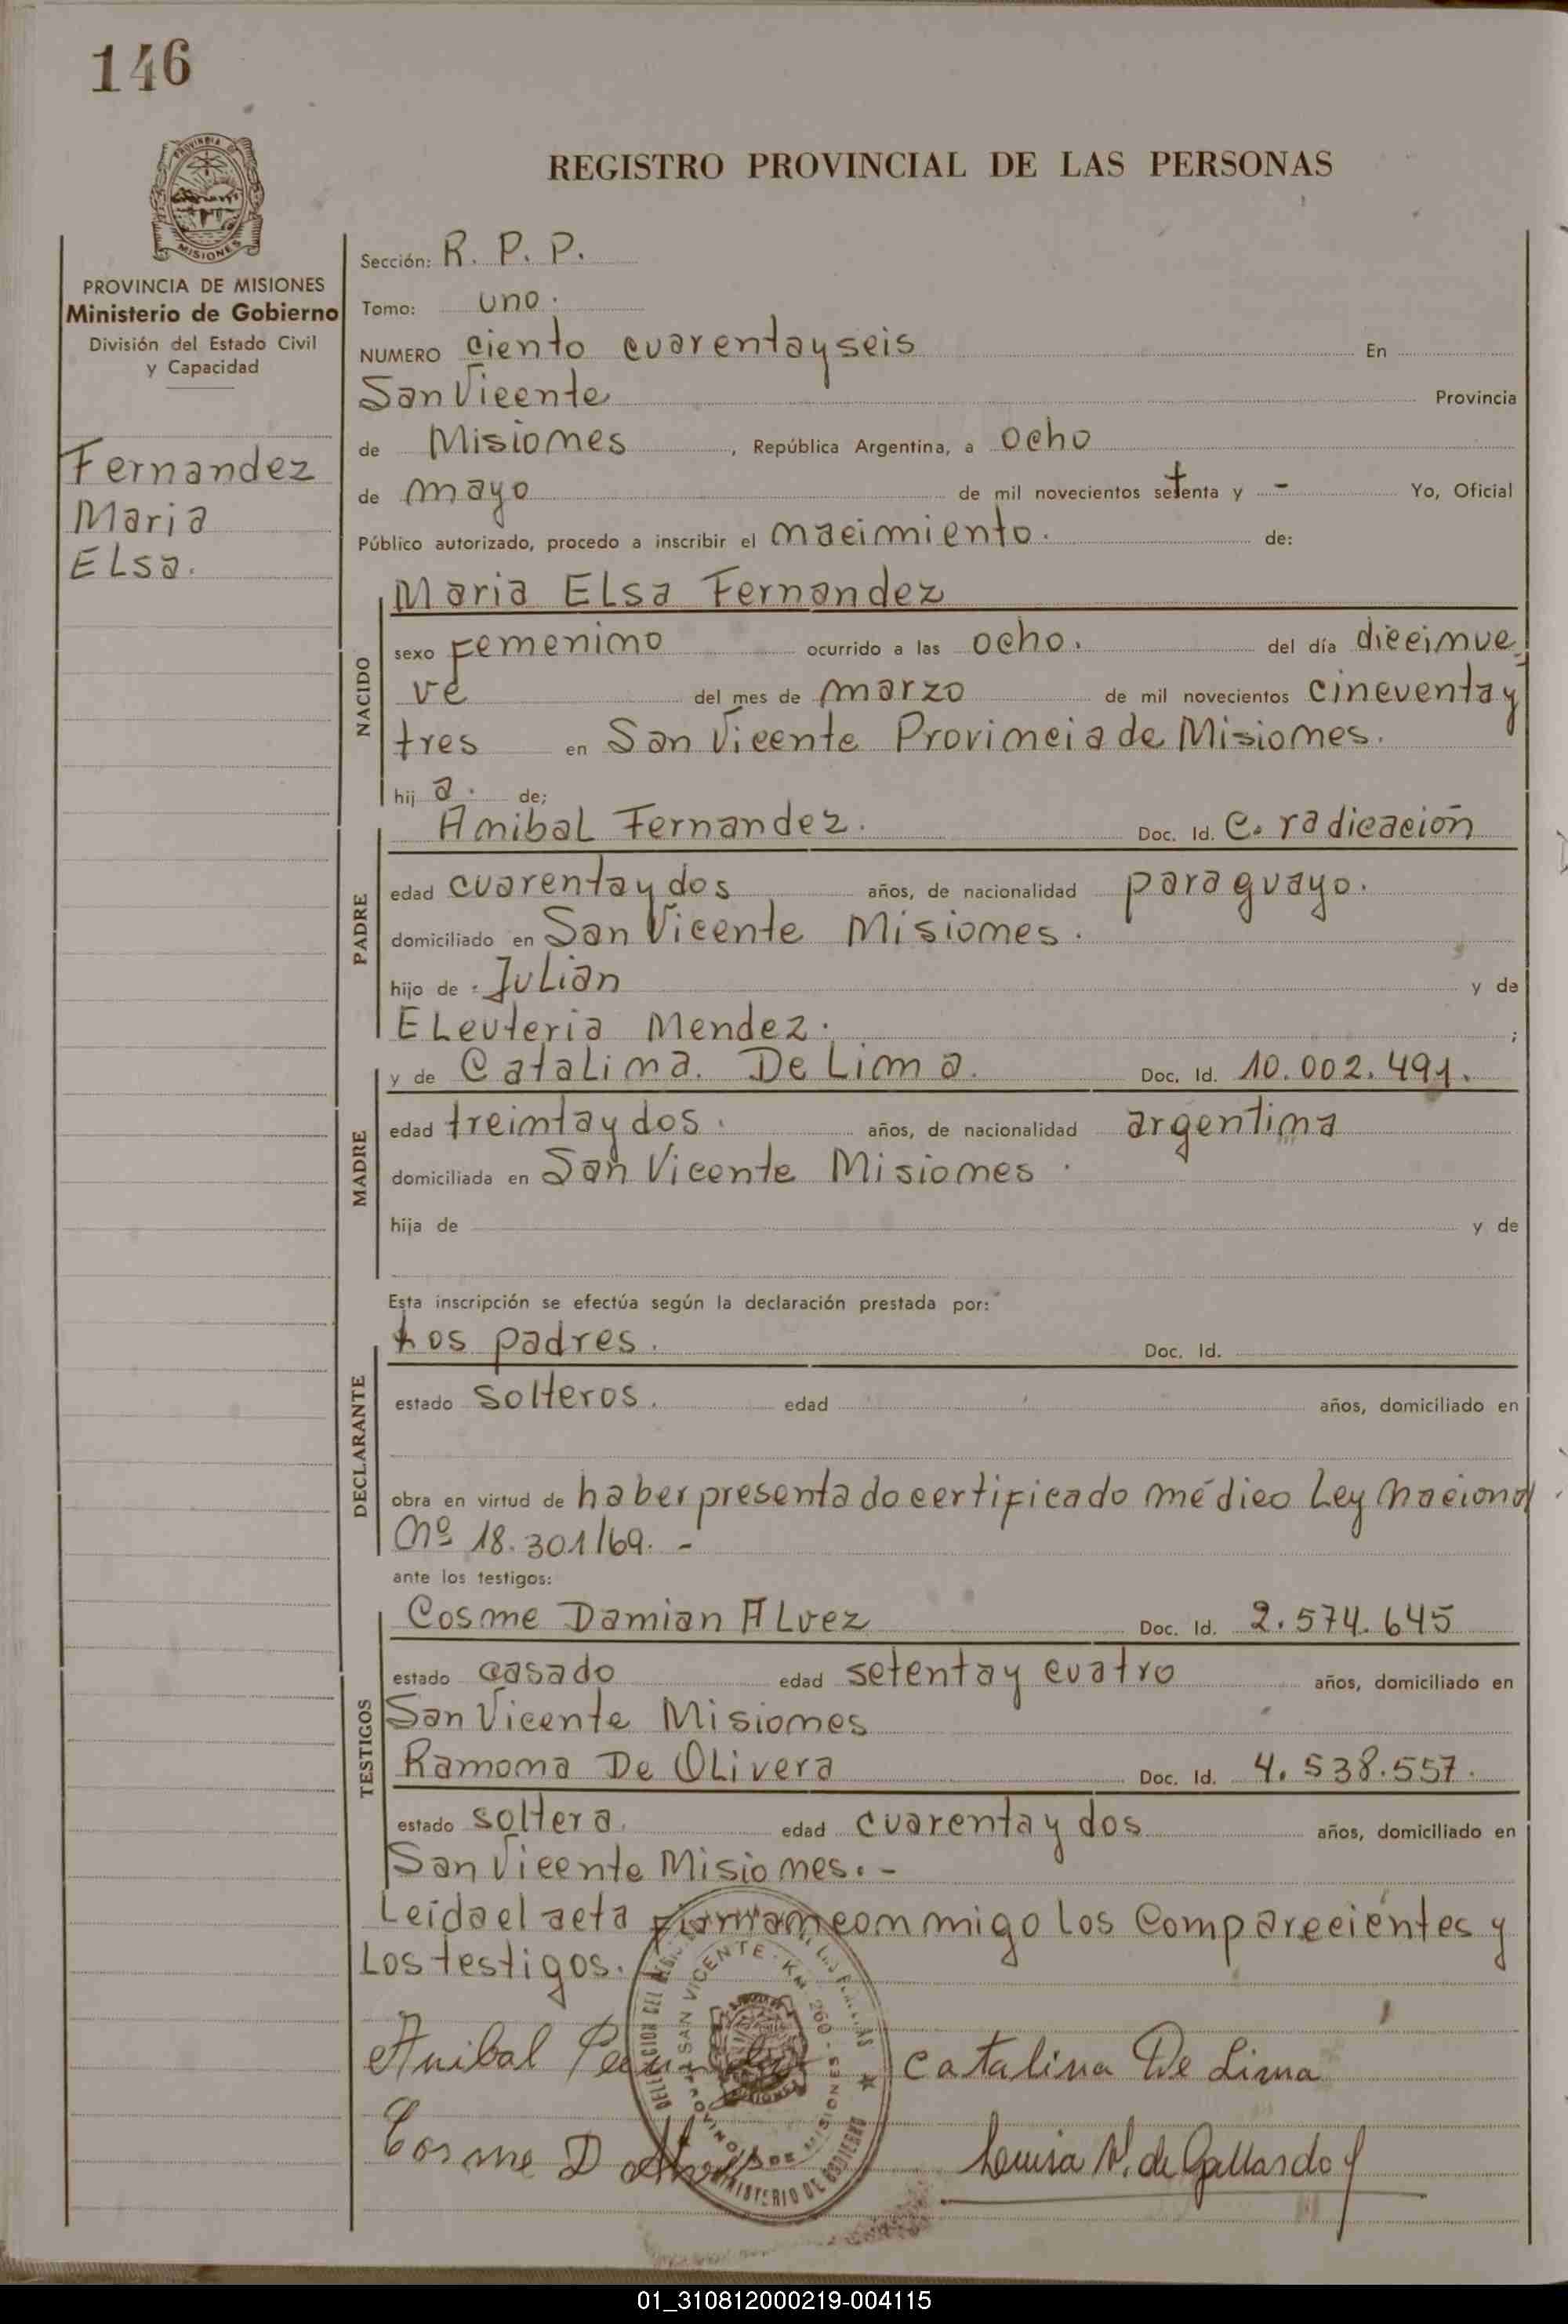 146
REGISTRO PROVINCIAL DE LAS PERSONAS
PROVINCIA DE
MISIONES
PROVINCIA DE MISIONES
Ministerio de Gobierno
División del Estado Civil
y Capacidad
Fernandez
Maria
Elsa.
Sección: R. P. P.
Tomo: uno.
NUMERO ciento cuarentayseis En
San Vicente Provincia
de Misiones, República Argentina, a ocho
de mayo de mil novecientos setenta y - Yo, Oficial
Público autorizado, procedo a inscribir el nacimiento. de:
NACIDO
Maria Elsa Fernandez
sexo femenino ocurrido a las ocho. del día diecinue
ve del mes de marzo de mil novecientos cincuentay
tres en San Vicente Provincia de Misiones.
hij a. de;
PADRE
Anibal Fernandez. Doc. Id. C. radicación
edad cuarentaydos años, de nacionalidad paraguayo.
domiciliado en San Vicente Misiones.
hijo de Julian y de
Eleuteria Mendez. ;
MADRE
y de Catalina. De Lima. Doc. Id. 10.002.491.
edad treintaydos. años, de nacionalidad argentina
domiciliada en San Vicente Misiones.
hija de y de
Esta inscripción se efectúa según la declaración prestada por:
DECLARANTE
Los padres. Doc. Id.
estado solteros. edad años, domiciliado en
obra en virtud de haber presentado certificado médico Ley Nacional
Nº 18.301/69. -
ante los testigos:
TESTIGOS
Cosme Damian Alvez Doc. Id. 2.574.645
estado casado edad setentay cuatro años, domiciliado en
San Vicente Misiones
Ramona De Olivera Doc. Id. 4.538.557.
estado soltera. edad cuarentay dos años, domiciliado en
San Vicente Misiones. -
Leida el acta firman conmigo los comparecientes y
Los testigos.
SAN VICENTE - KM. 260 -
MISIONES
MINISTERIO DE GOBIERNO
Anibal Catalina De Lima
Cosme D Luisa V. de Gallardo
01_310812000219-004115